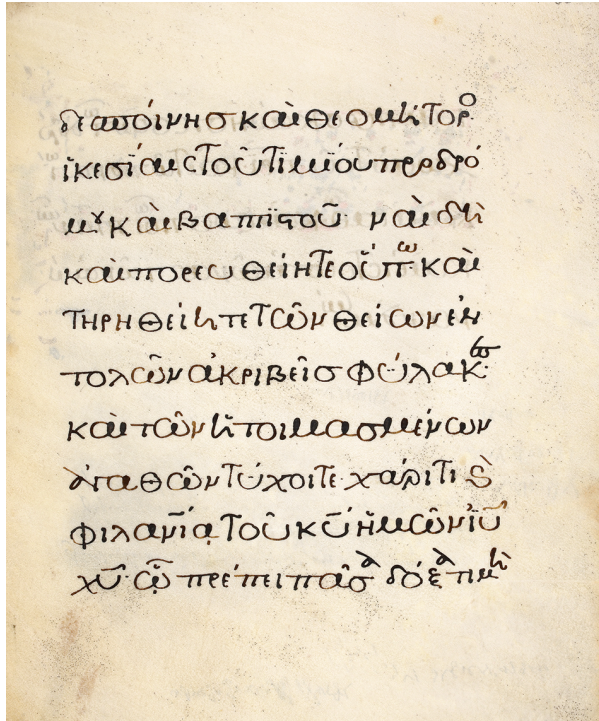 δεσποίνησ καὶ θεομήτορο
ἱκεσίαις τοῦ τιμίου προδρό
μου καὶ βαπτιστοῦ· ναὶ δὴ
καὶ πορευθείητε οὕτω καὶ
τηρηθείητε τῶν θείων ἐν
τολῶν ἀκριβεῖσ φύλακες·
καὶ τῶν ἡτοιμασμένων
ἀγαθῶν τύχοιτε· χάριτι καὶ
φιλανία τοῦ κυ ἡμῶν ιυ
χυ· ᾧ πρέπει πᾶσα δόξα τιμὴ